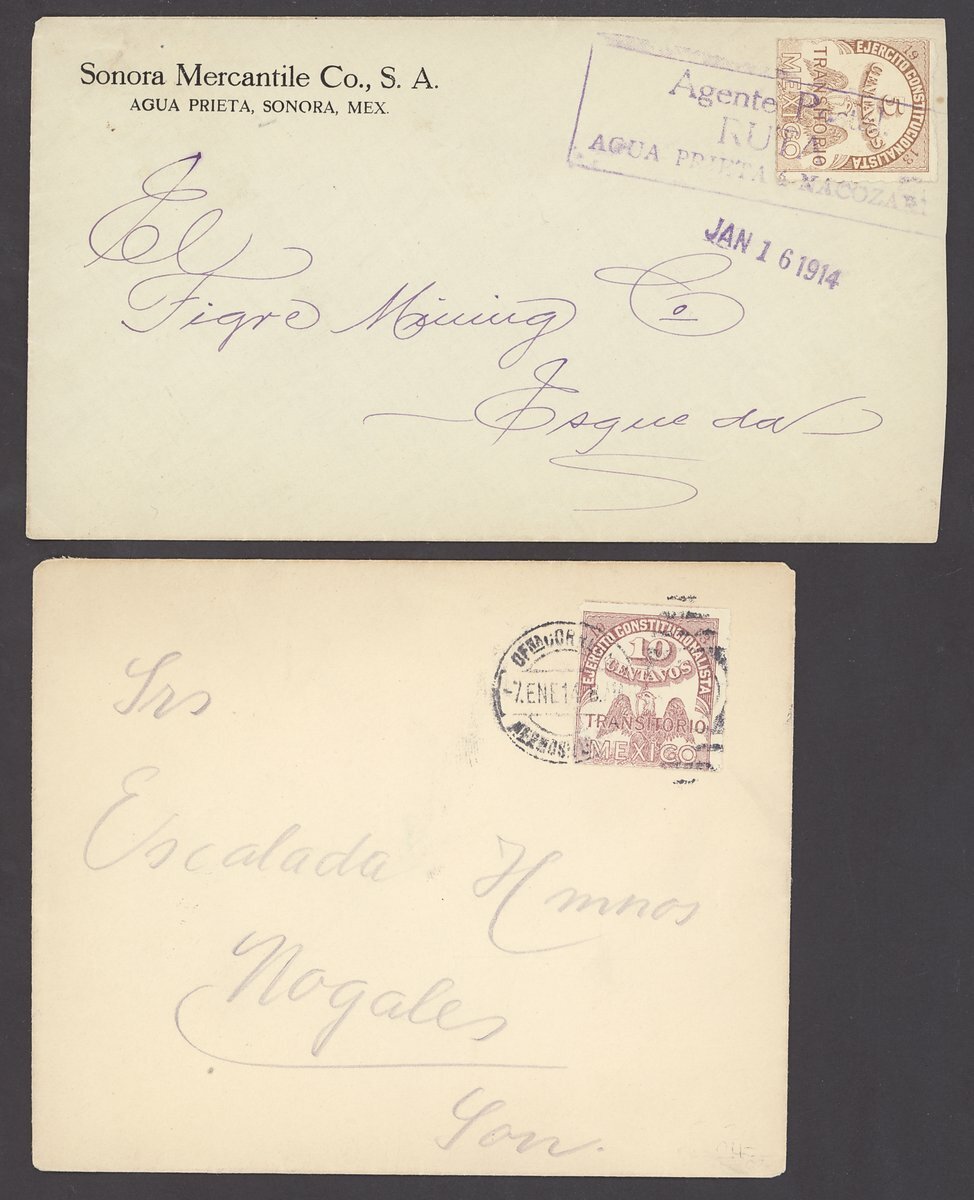 Sonora Mercantile Co., S. A.
AGUA PRIETA, SONORA, MEX.
Agente Postal
RUTA
AGUA PRIETA á NACOZARI
EJERCITO CONSTITUCIONALISTA
19 13
5
CENTAVOS
TRANSITORIO
MEXICO
JAN 16 1914
El
Tigre Mining Co
Esqueda
EJERCITO CONSTITUCIONALISTA
10
CENTAVOS
TRANSITORIO
MEXICO
-7.ENE.14
Srs
Escalada Hmnos
Nogales
Son.